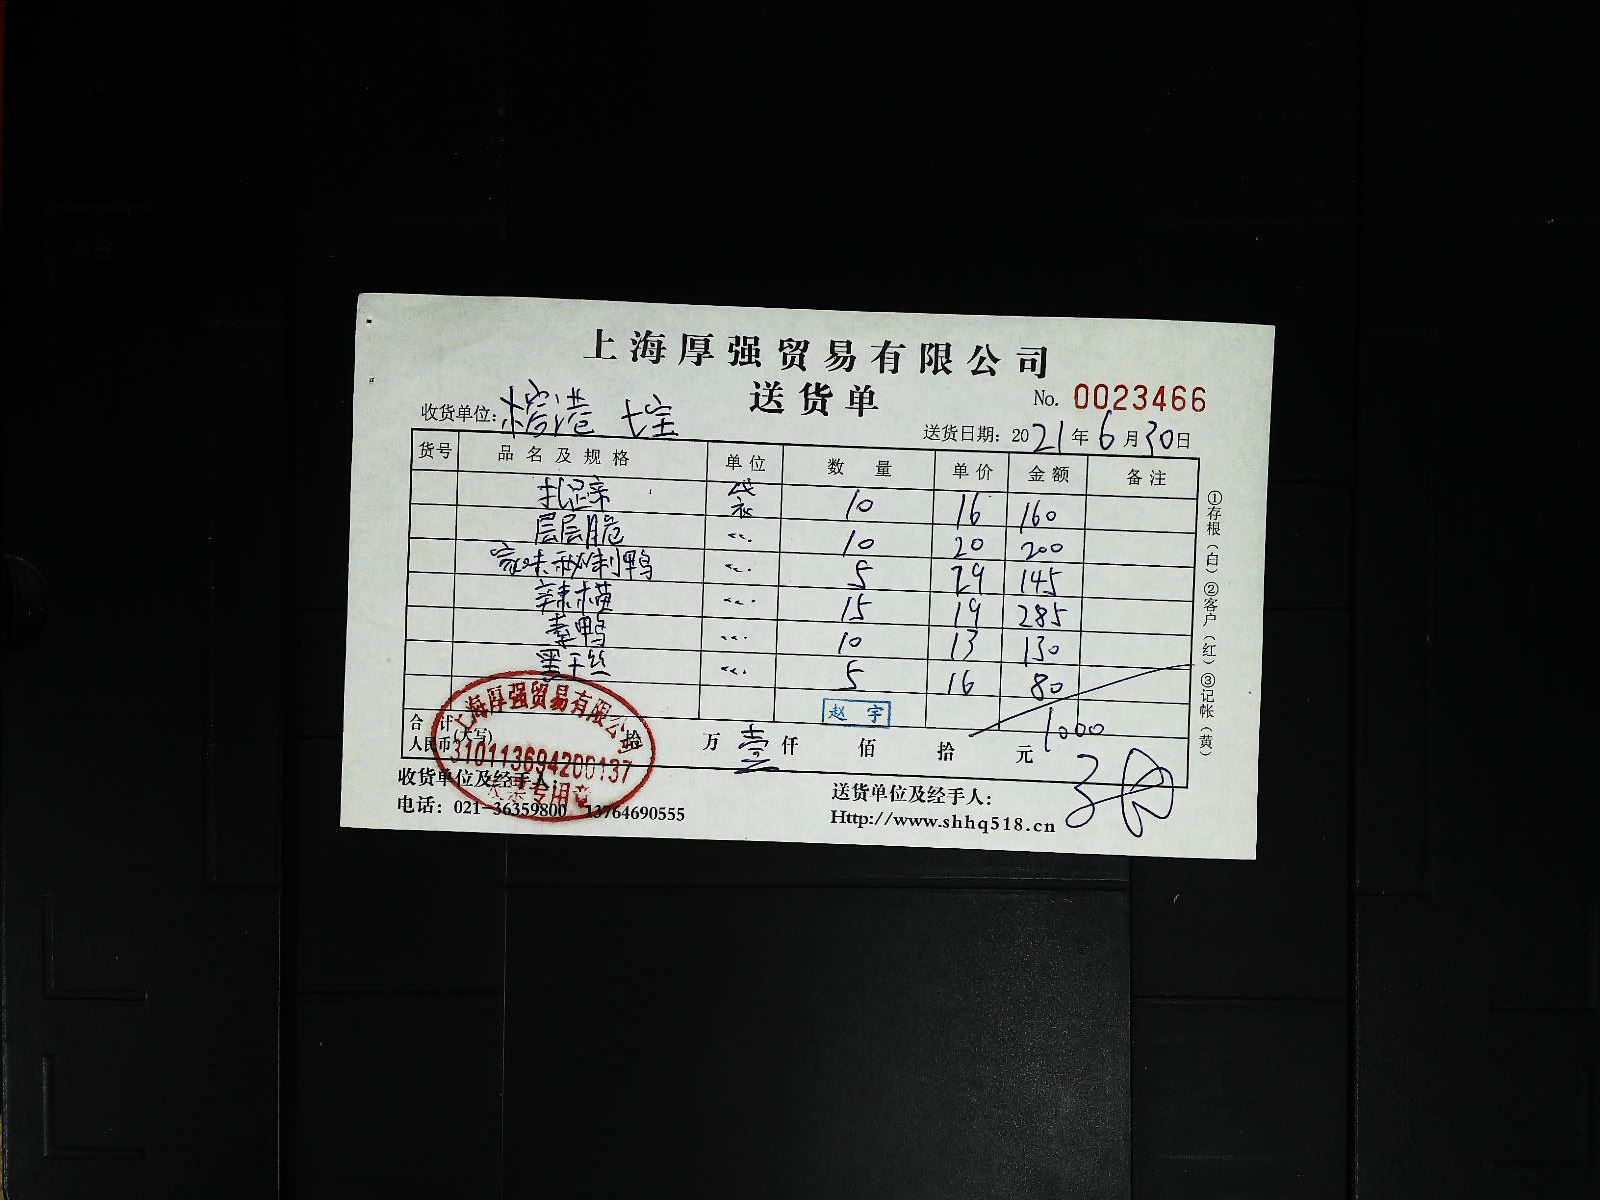 上海厚强贸易有限公司
送货单
No. 0023466
收货单位:
送货日期: 2021年6月30日
货号 品名及规格 单位 数量 单价 金额 备注
袋 10 16 160
层层脆 〃 10 20 200
家味秘制鸭 〃 5 29 145
辣 〃 15 19 285
素鸭 〃 10 13 130
黑干丝 〃 5 16 80
赵宇
1000
合计
人民币(大写) 拾 万 壹 仟 佰 拾 元
上海厚强贸易有限公司
310113694200137
发票专用章
收货单位及经手人:
送货单位及经手人:
电话: 021-36359800 13764690555
Http://www.shhq518.cn
①存根(白)②客户(红)③记帐(黄)